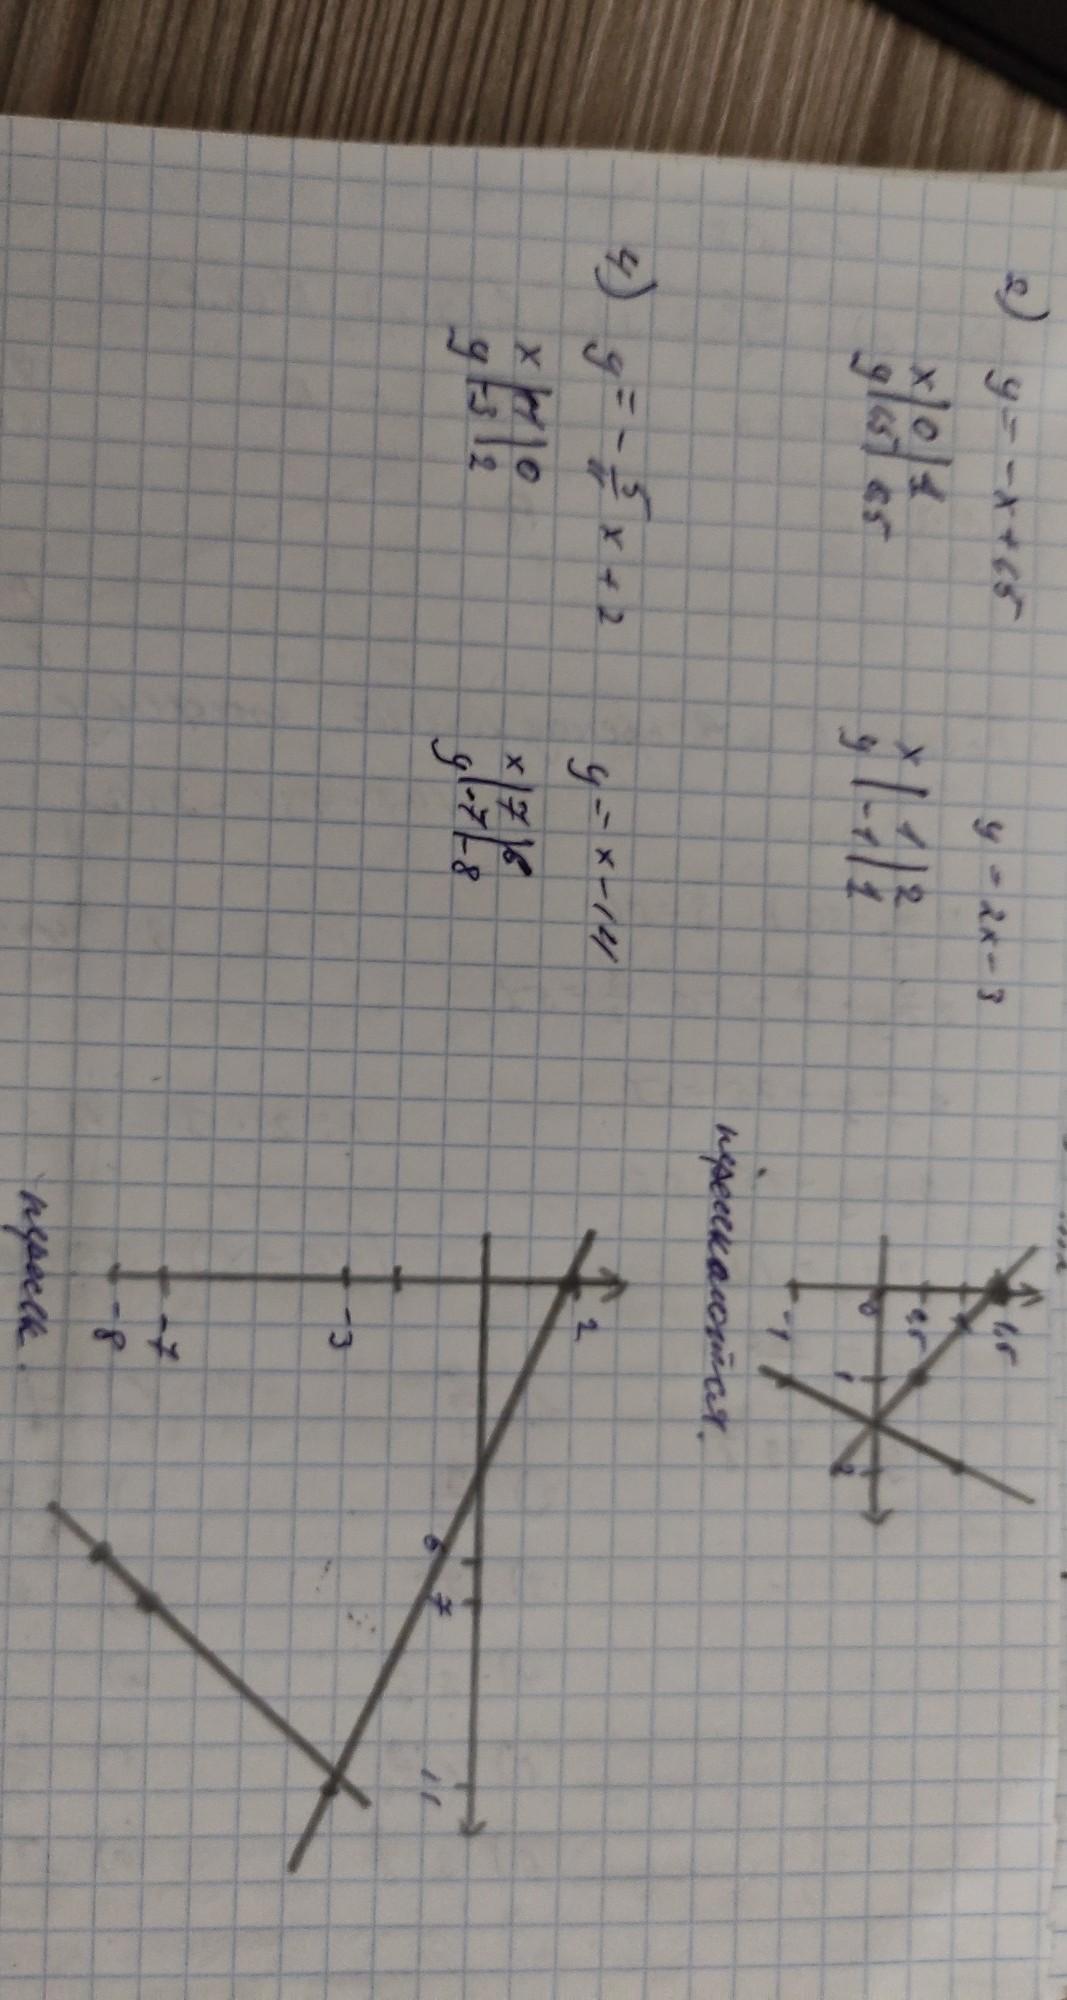 2) y = -x + 1,5
y = 2x - 3
x | 0 | 1
y | 1,5 | 0,5
x | 1 | 2
y | -1 | 1
1,5
0,5
0
-1
1
2
пересекаются.
4) y = - 5/11 x + 2
y = x - 14
x | 11 | 0
y | -3 | 2
x | 7 | 6
y | -7 | -8
2
-3
-7
-8
6
7
11
пересек.